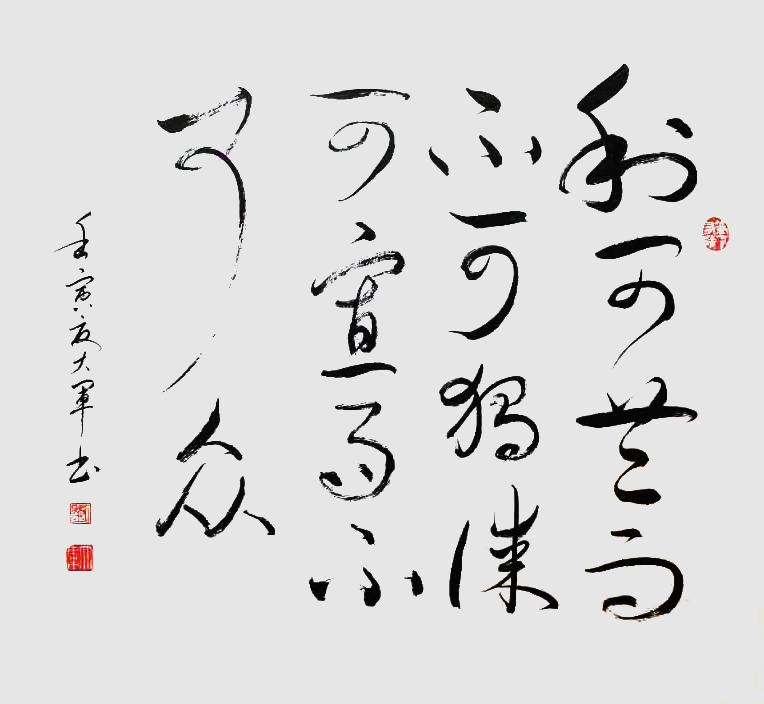 利可共而
不可獨謀
可寡而不
可众
壬寅夏大軍书